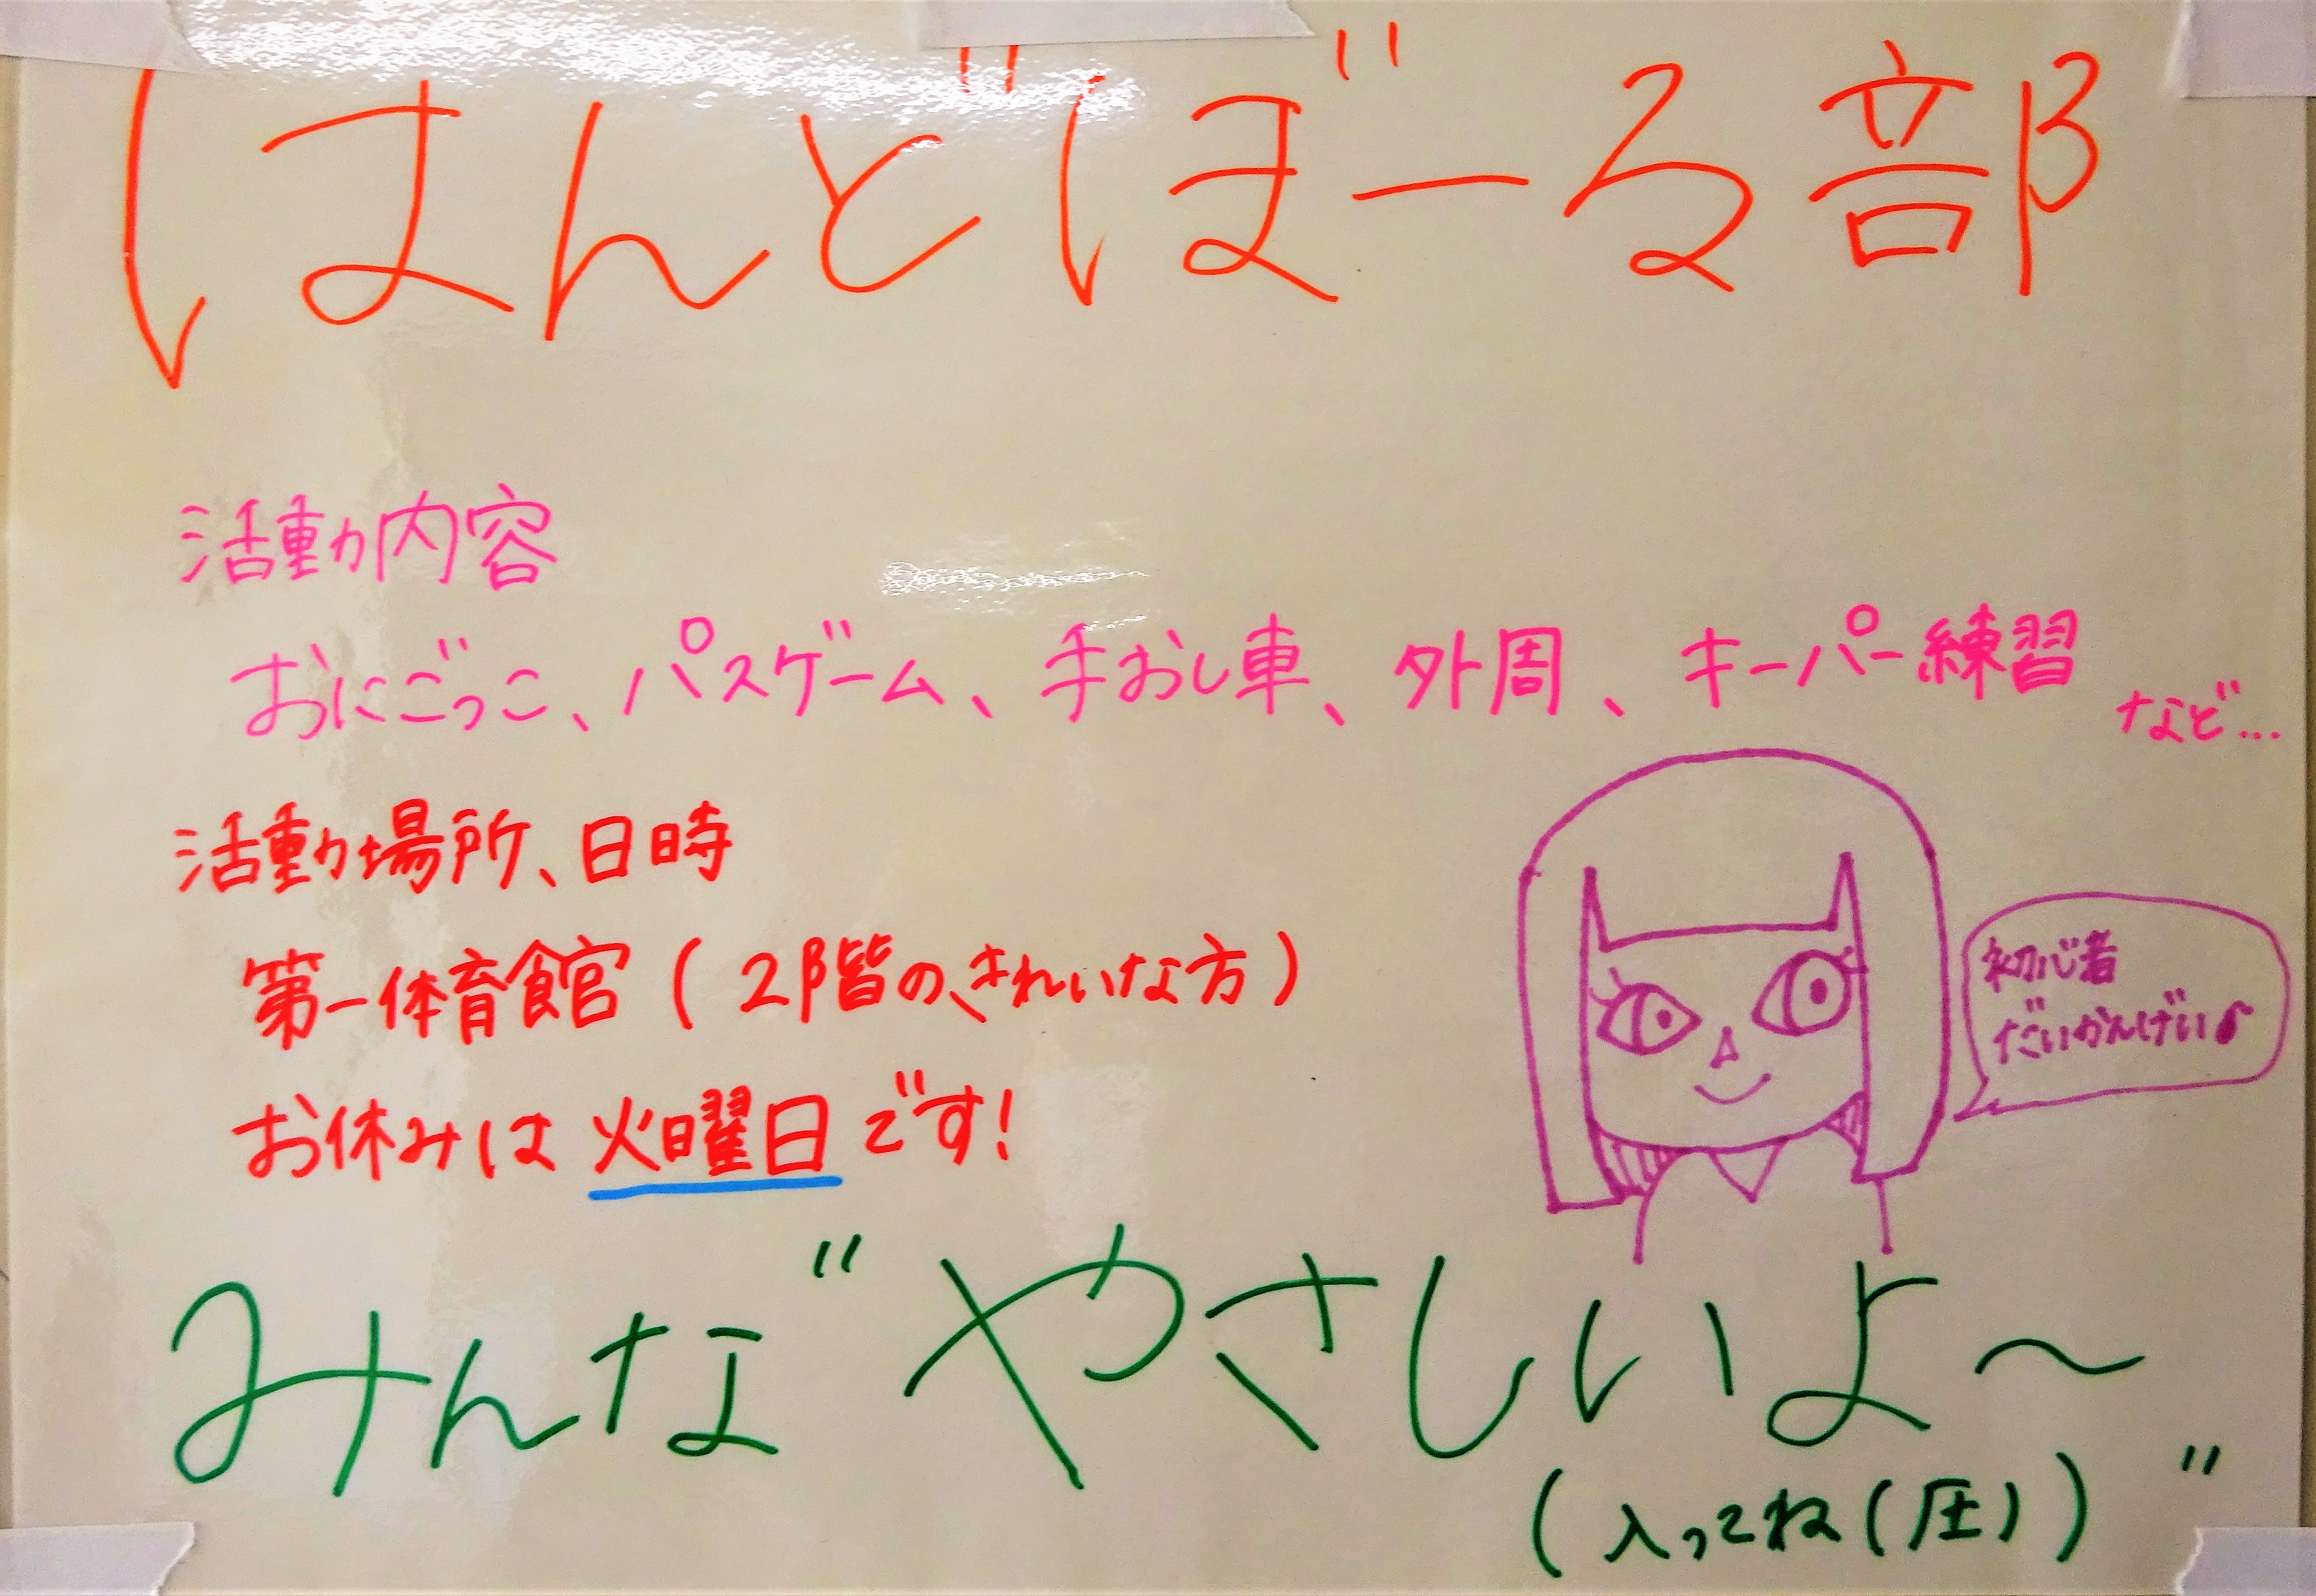 はんどぼーる部
活動内容
おにごっこ、パスゲーム、手おし車、外周、キーパー練習 など…
活動場所、日時
第一体育館(2階のきれいな方)
お休みは火曜日です!
初心者
だいかんげい♪
みんな“やさしいよ〜
(入ってね(圧))”